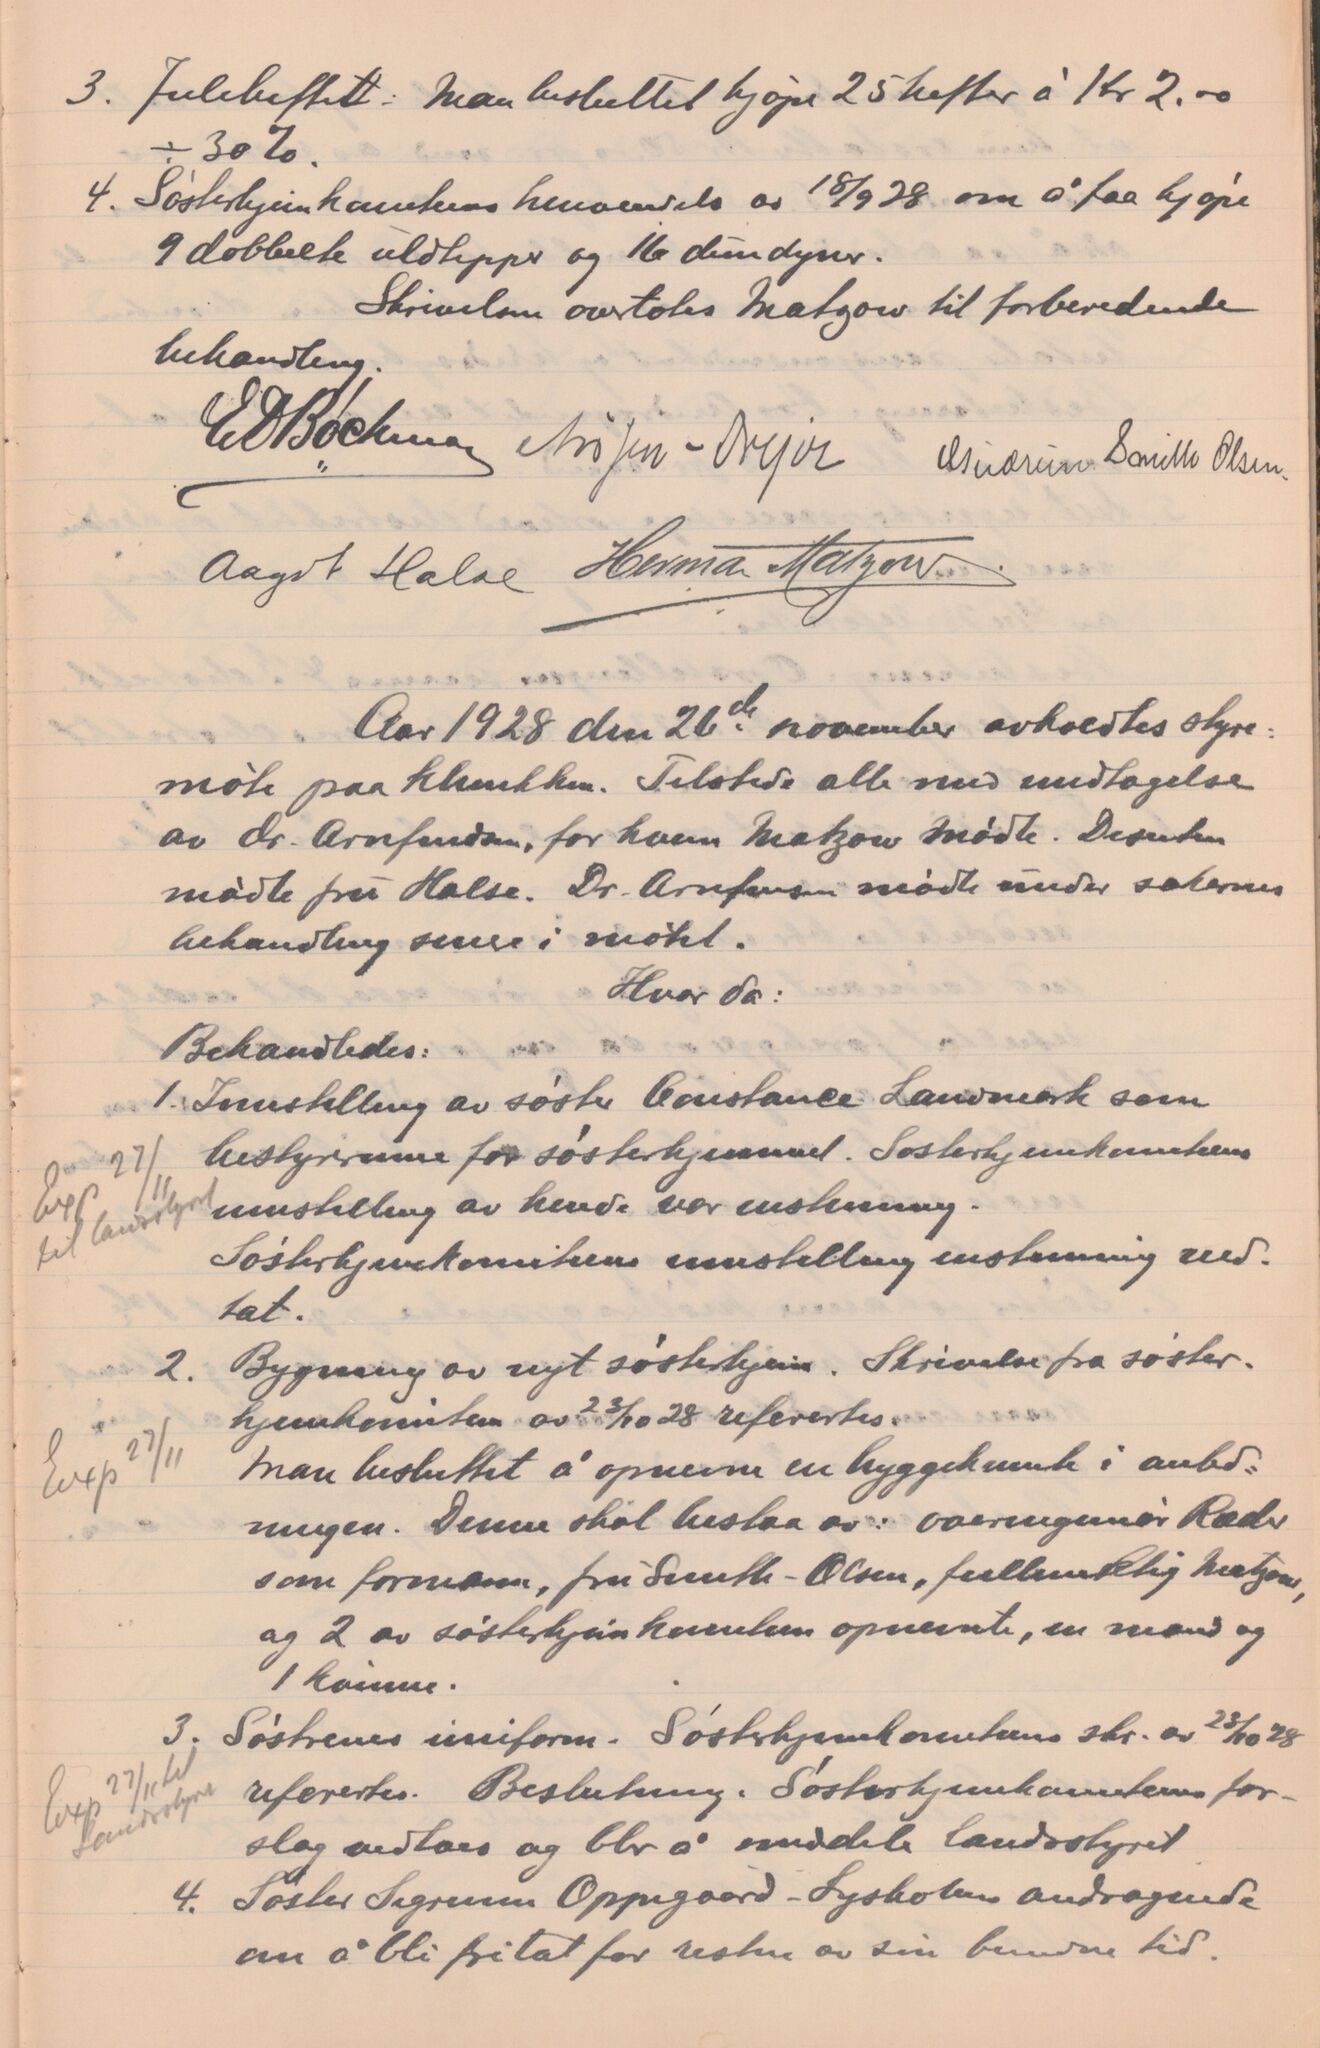 3. Juleheftet: Man besluttet kjøpe 25 hefter à Kr 2.00
÷ 30 %.
4. Søsterhjemkomiteens henvendelse av 18/9 28 om å faa kjøpe
9 dobbelte uldtepper og 16 dundyner.
Skrivelsen overtokes Matzow til forberedende
behandling.
E D Bøckman Smith Olsen.
Aagot Halse Herman Matzow
Aar 1928 den 26de november avholdtes styre:
møte paa klinikken. Tilstede alle med undtagelse
av dr. Arnfindsen, for hvem Matzow mødte. Desuten
mødte fru Halse. Dr. Arnfinsen mødte under sakernes
behandling senere i møtet.
Hvor da:
Behandledes:
1. Innstilling av søster Constance Landmark som
bestyrerinne for søsterhjemmet. Søsterhjemkomiteens
innstilling av hende var enstemmig.
Exp 27/11
til landsstyret
Søsterhjemkomiteens innstilling enstemmig ved-
tat.
2. Bygning av nyt søsterhjem. Skrivelse fra søster-
hjemkomiteen av 23/10 28 refertes.
Exp 27/11
Man besluttet å opnevne en byggekomite i anled=
ningen. Denne skal bestaa av: overingeniør Ræder
som formann, fru Smith-Olsen, fullmektig Matzow,
og 2 av søsterhjemkomiteen opnevnte, en mand og
1 kvinne.
3. Søstrenes uniform. Søsterhjemkomiteens skr. av 23/10 28
refertes. Beslutning. Søsterhjemkomiteens for-
Exp 27/11 til
Landsstyre
slag vedtaes og blir å meddele landsstyret
4. Søster Sigrunn Oppegaard-Lysholms andragende
om å bli fritat for resten av sin bundne tid.